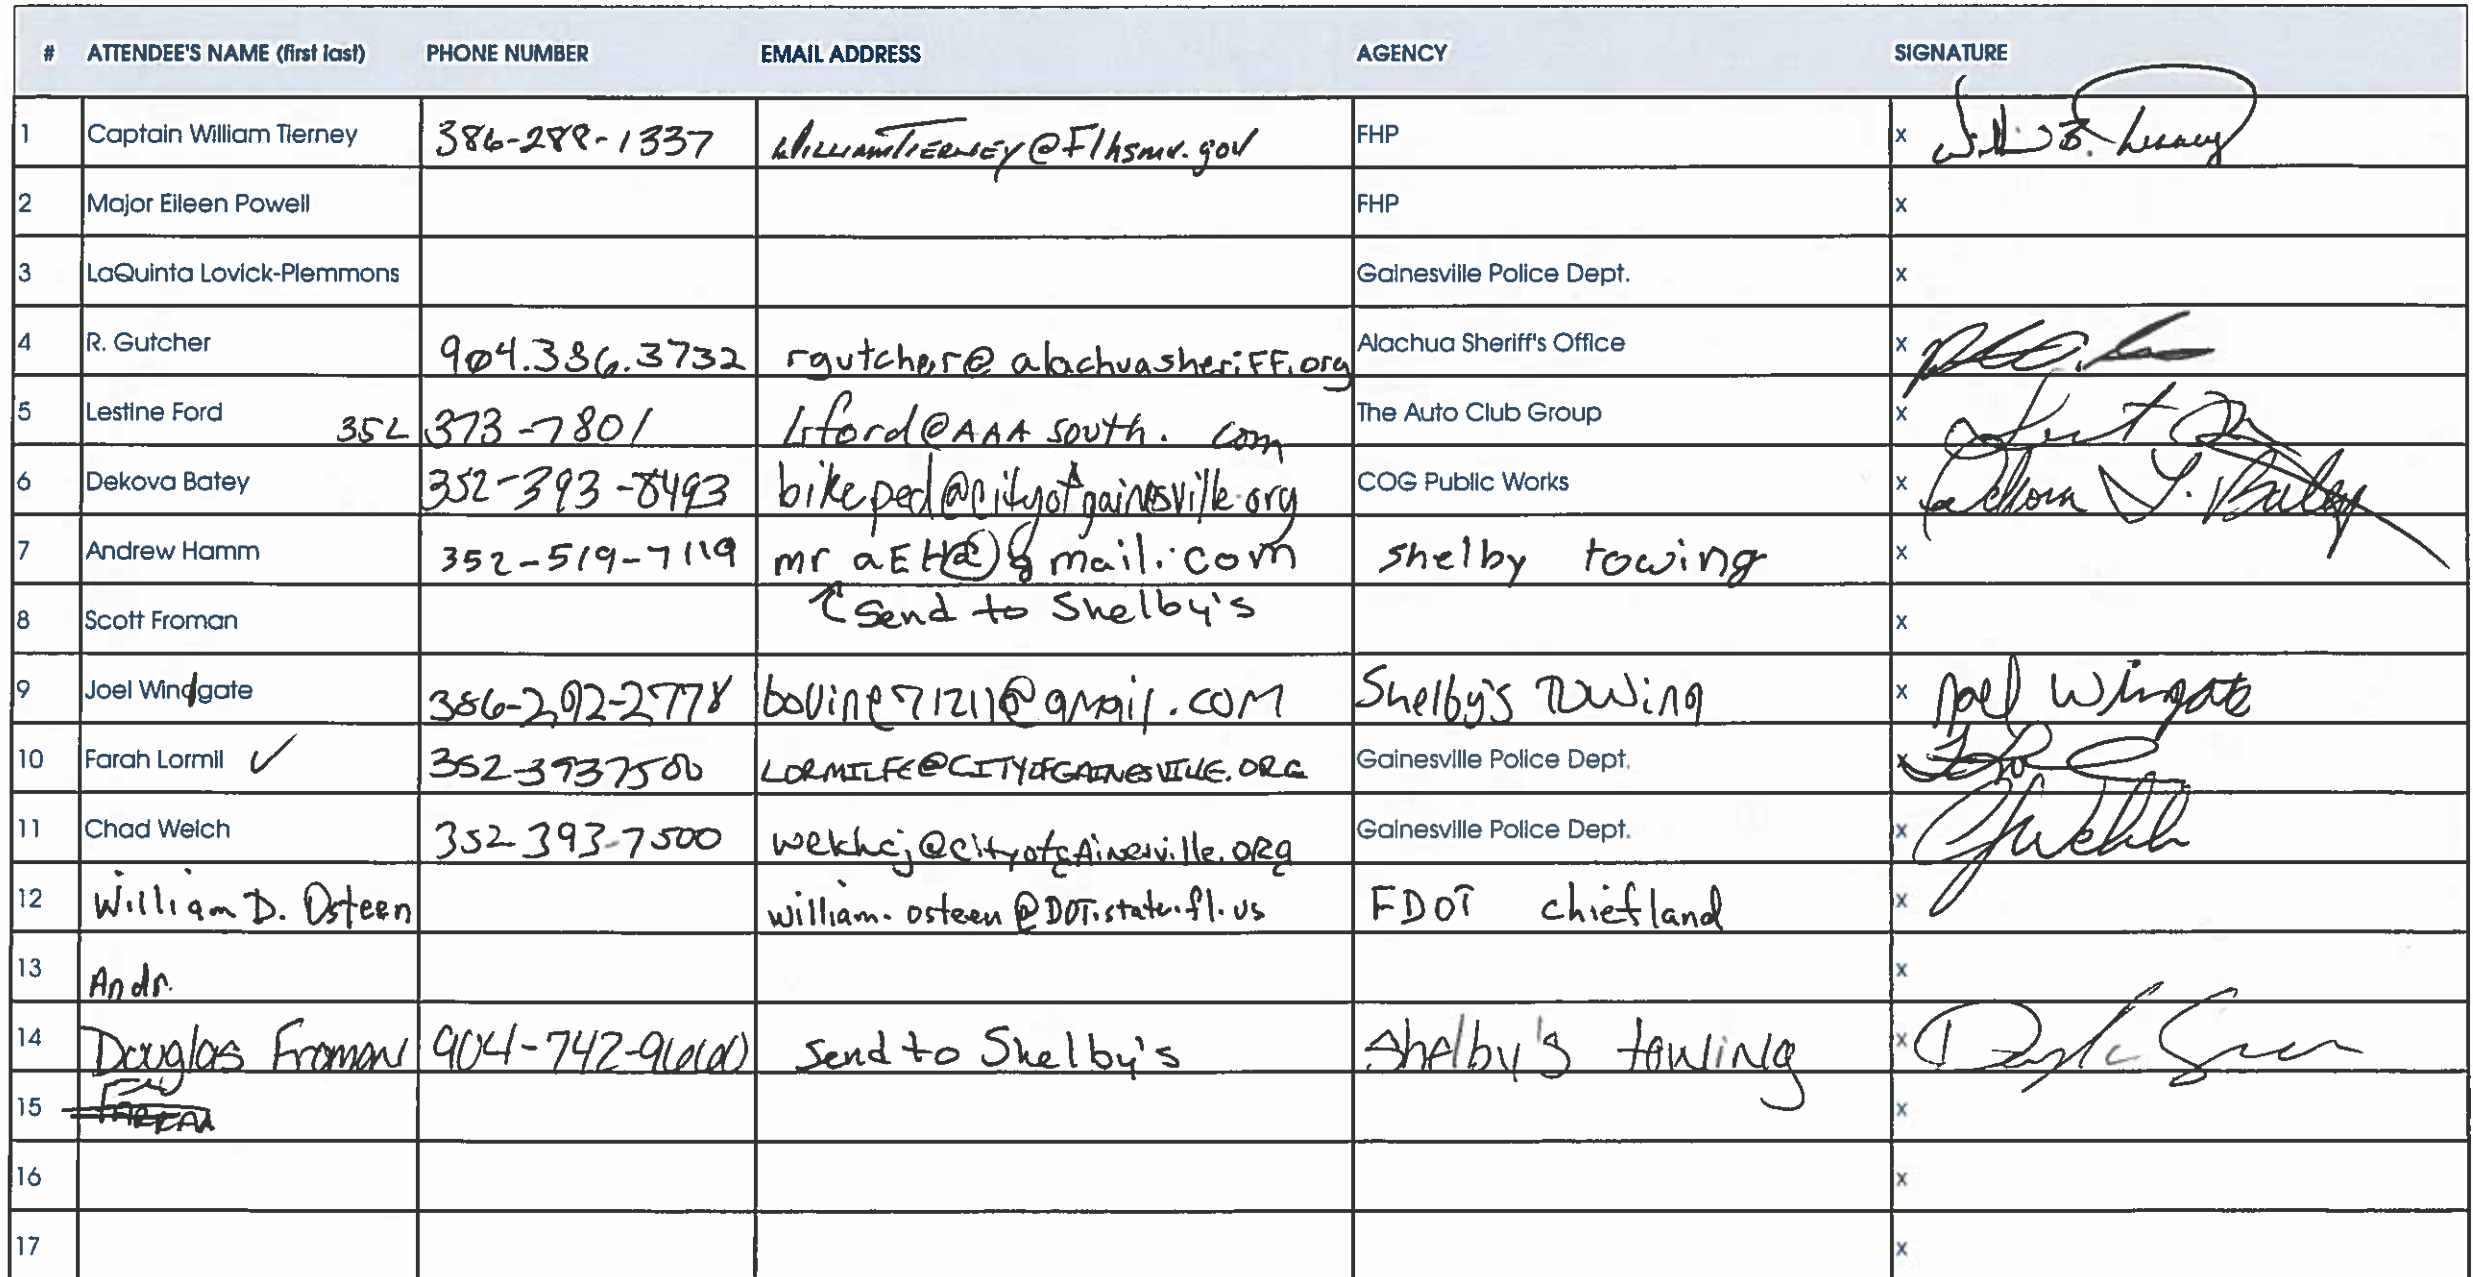 # ATTENDEE'S NAME (first last) PHONE NUMBER EMAIL ADDRESS AGENCY SIGNATURE
1 Captain William Tierney 386-288-1337 WILLIAMTIERNEY@Flhsmv.gov FHP x
2 Major Eileen Powell FHP x
3 LaQuinta Lovick-Plemmons Gainesville Police Dept. x
4 R. Gutcher 904.386.3732 rgutcher@alachuasheriFF.org Alachua Sheriff's Office x
5 Lestine Ford 352 373-7801 lrford@AAA south. com The Auto Club Group x
6 Dekova Batey 352-393-8493 bikeped@cityofgainesville.org COG Public Works x
7 Andrew Hamm 352-519-7119 mr aEH@gmail.com shelby towing x
8 Scott Froman Send to Shelby's x
9 Joel Windgate 386-292-2778 bovine71211@gmail.com Shelby's Towing x Joel Wingate
10 Farah Lormil ✓ 352-3937500 LORMILFE@CITYOFGAINESVILLE.ORG Gainesville Police Dept. x
11 Chad Welch 352-393-7500 welchcj@cityofgAinesville.ORg Gainesville Police Dept. x
12 William D. Osteen william.osteen@DOT.state.fl.us FDOT chiefland x
13 Andr. x
14 Douglas Froman 904-742-9660 Send to Shelby's Shelby's towing x
15 x
16 x
17 x